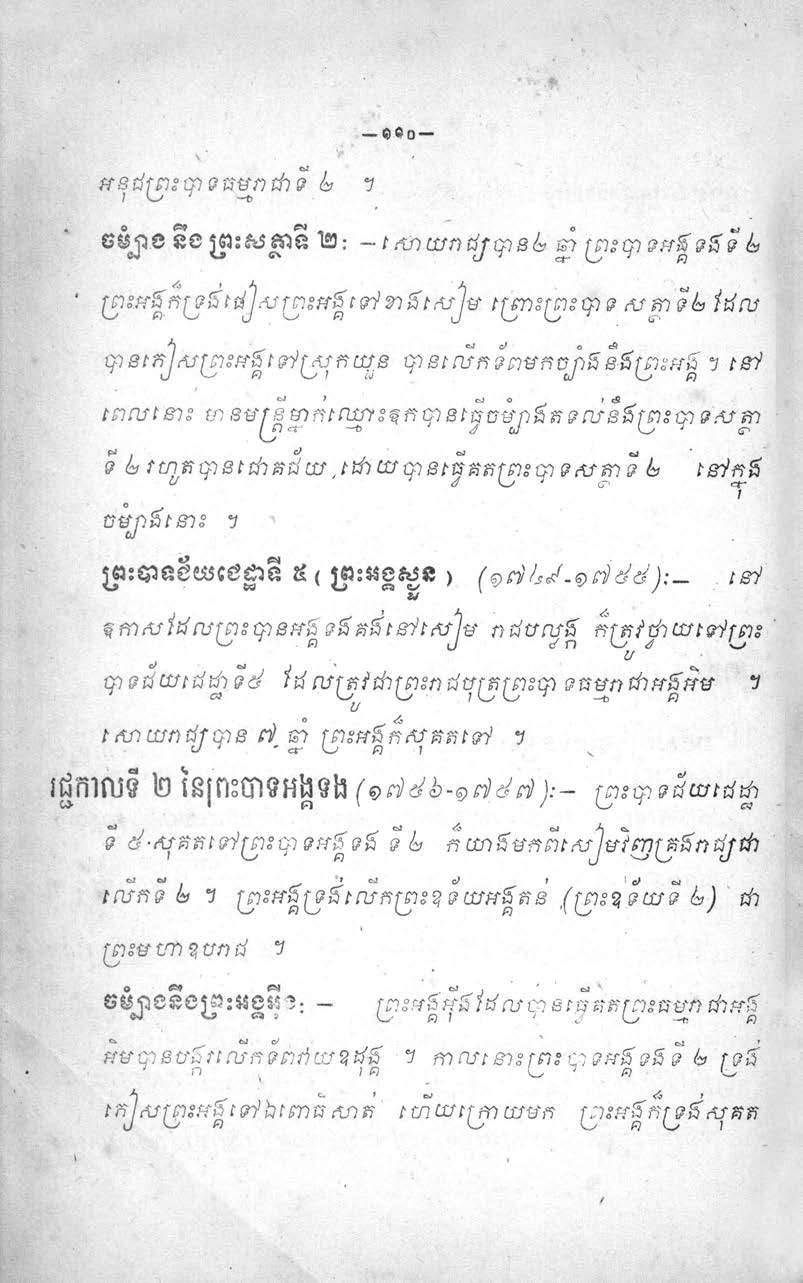 —១១០—
អនុជព្រះបាទធម្មរាជាទី ២ ។
ចម្បាំង នឹង ព្រះសត្ថាទី ២: —សោយរាជ្យបាន២ ឆ្នាំ ព្រះបាទអង្គទងទី ២
ព្រះអង្គក៏ទ្រង់ផៀសព្រះអង្គទៅខាងសៀម ព្រោះព្រះបាទ សត្ថាទី២ ដែល
បានភៀសព្រះអង្គទៅស្រុកយួន បានលើកទ័ពមកច្បាំងនឹងព្រះអង្គ ។ នៅ
ពេលនោះ មានមន្ត្រីម្នាក់ឈ្មោះឧកបានធ្វើចម្បាំងតទល់នឹងព្រះបាទសត្ថា
ទី ២ រហូតបានជោគជ័យ ,ដោយបានធ្វើគតព្រះបាទសត្ថាទី ២ នៅក្នុង
ចម្បាំងនោះ ។
ព្រះបាទជ័យជេដ្ឋាទី ៥ ( ព្រះអង្គស្ងួន ) (១៧៤៩-១៧៥៥):— នៅ
ឧកាសដែលព្រះបានអង្គទងគង់នៅសៀម រាជបល្ល័ង្ក ក៏ត្រូវថ្វាយទៅព្រះ
បាទជ័យជេដ្ឋាទី៥ ដែលត្រូវជាព្រះរាជបុត្រព្រះបាទធម្មរាជាអង្គអិម ។
សោយរាជ្យបាន ៧ ឆ្នាំ ព្រះអង្គក៏សុគតទៅ ។
រជ្ជកាលទី ២ នៃព្រះបាទអង្គទង (១៧៥៦-១៧៥៧):— ព្រះបាទជ័យជេដ្ឋា
ទី ៥.សុគតទៅព្រះបាទអង្គទង ទី ២ ក៏យាងមកពីសៀមវិញគ្រងរាជ្យជា
លើកទី ២ ។ ព្រះអង្គទ្រង់លើកព្រះឧទ័យអង្គតន់ (ព្រះឧទ័យទី ២) ជា
ព្រះមហាឧបរាជ ។
ចម្បាំងនឹងព្រះអង្គអ៊ីង: — ព្រះអង្គអ៊ីងដែលបានធ្វើគតព្រះធម្មរាជាអង្គ
អិមបានបង្ករលើកទ័ពវាយឧដុង្គ ។ កាលនោះព្រះបាទអង្គទងទី ២ ទ្រង់
ភៀសព្រះអង្គទៅឯពោធិសាត់ ហើយក្រោយមក ព្រះអង្គក៏ទ្រង់សុគត